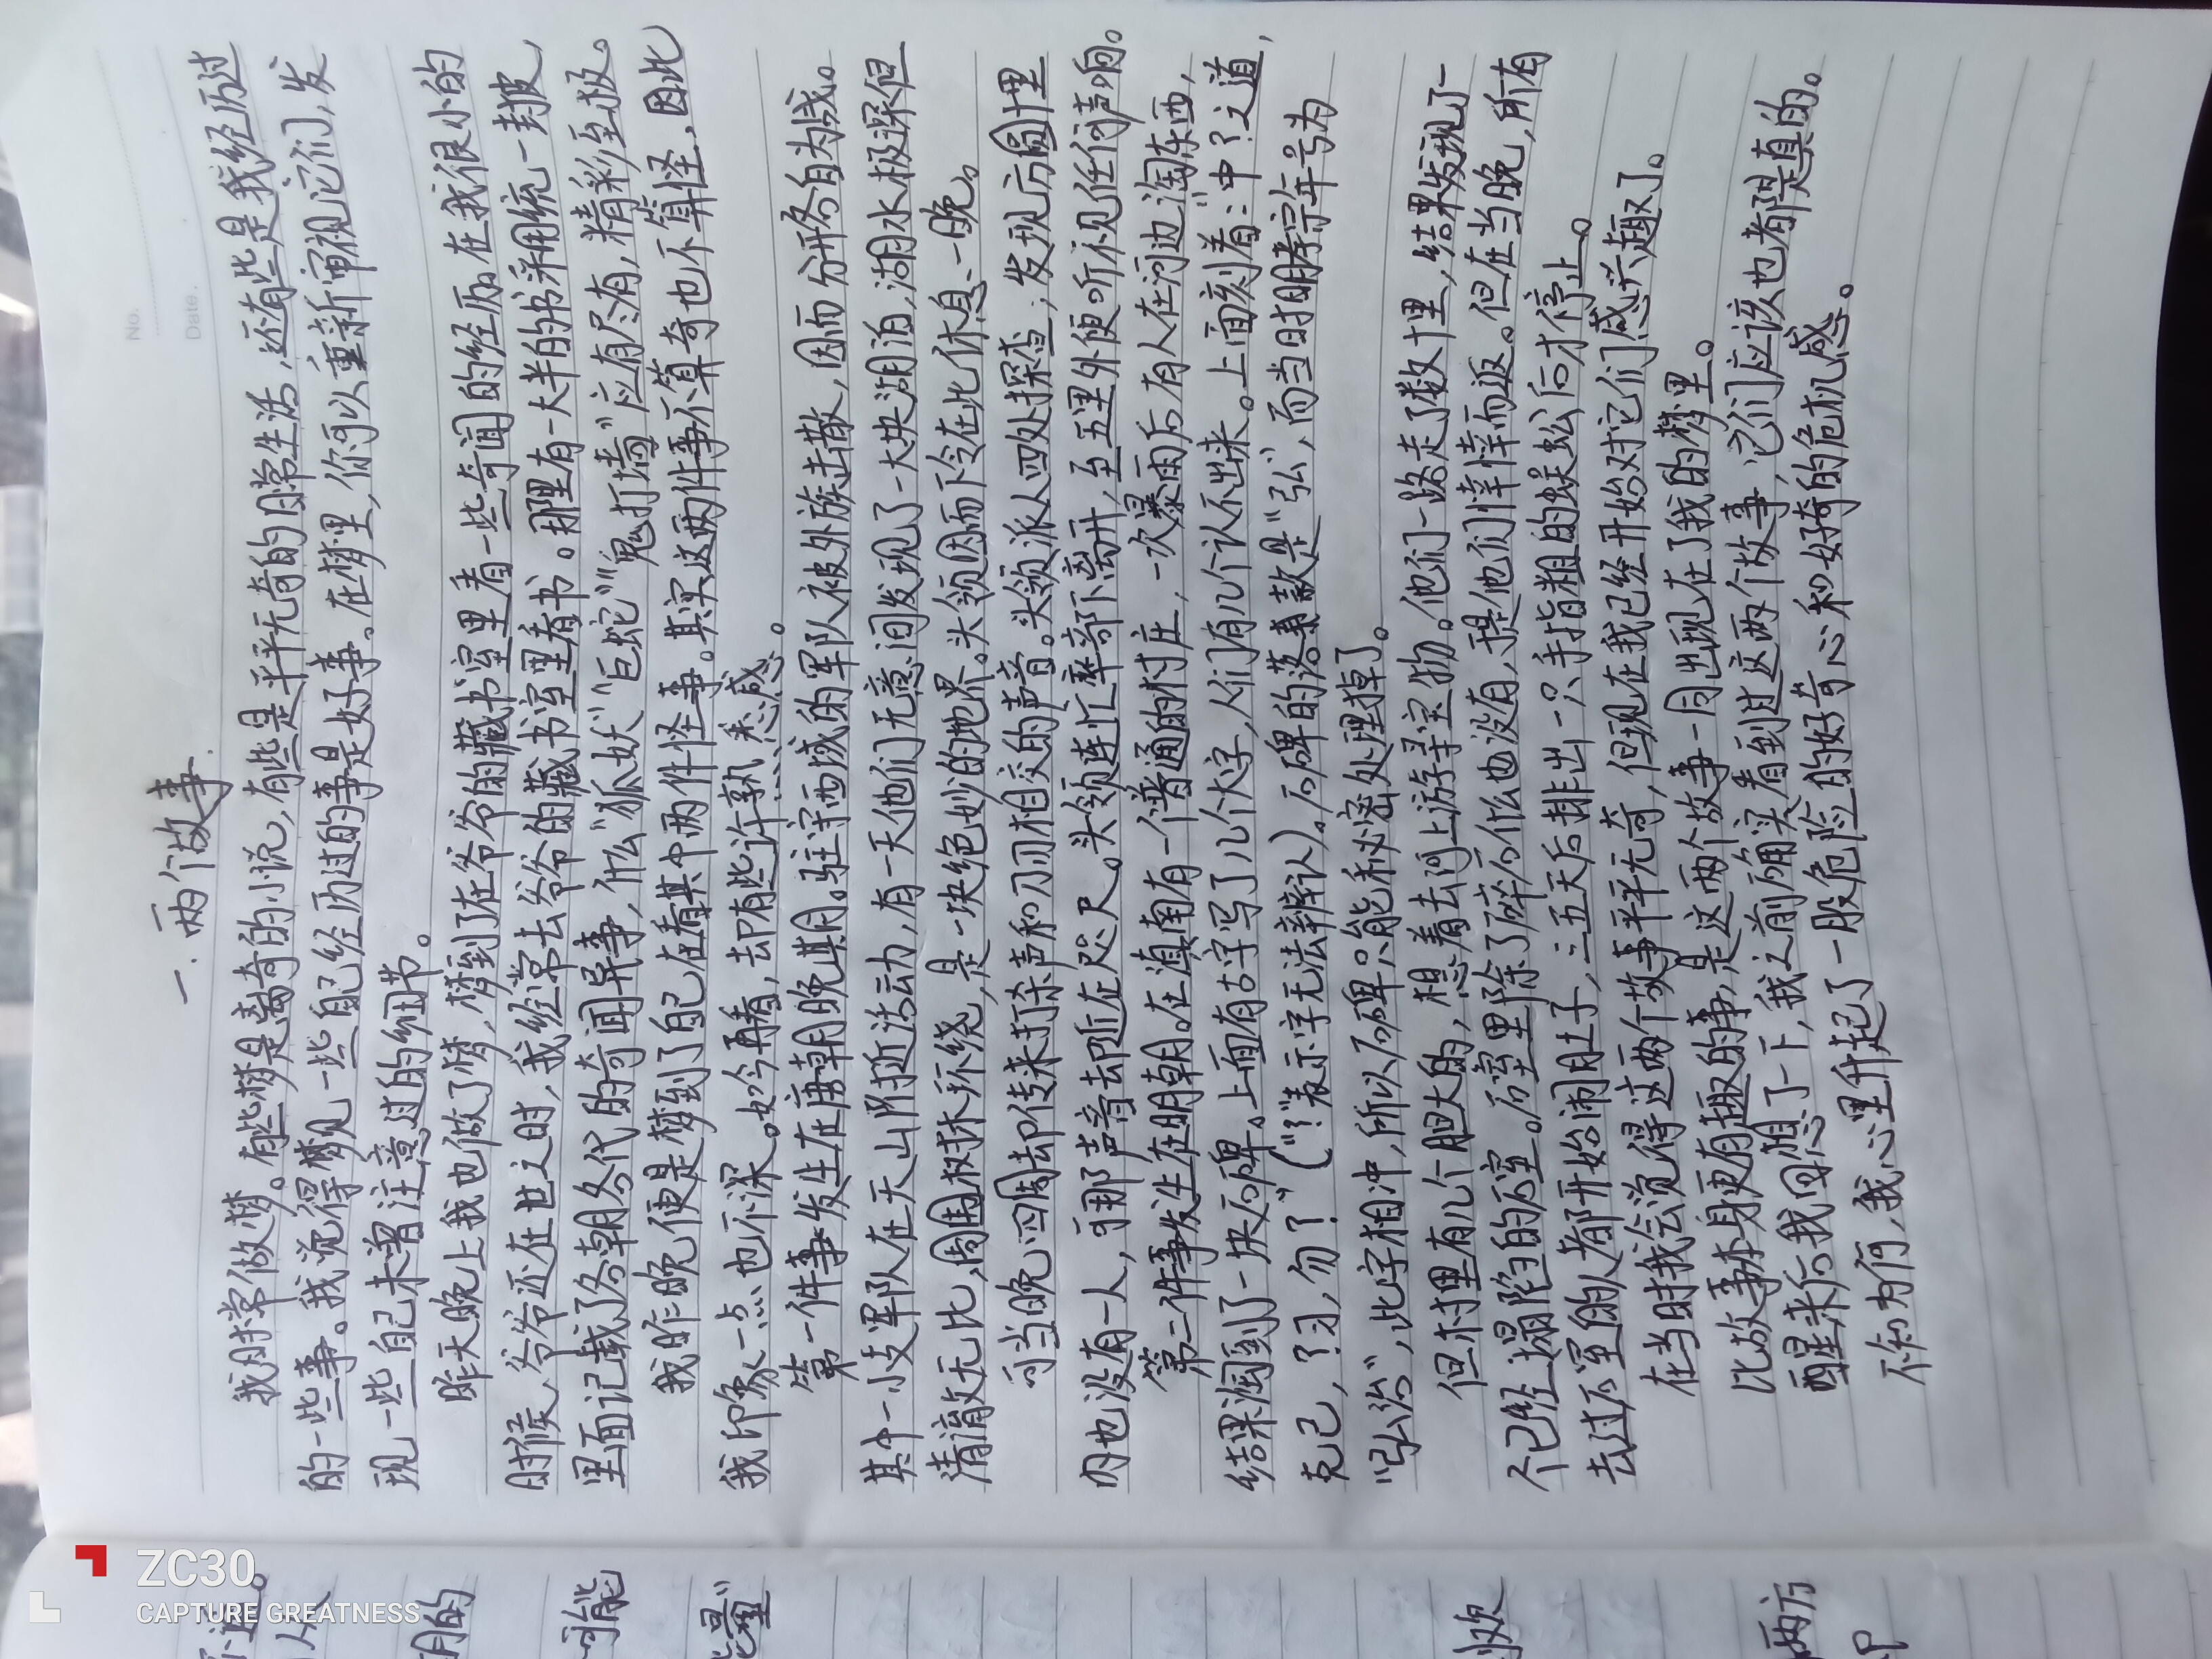 No.
Date.
一. 两个故事.
我时常做梦。有些梦是离奇的小说，有些是平平无奇的日常生活，还有些是我经历过
的一些事。我觉得梦见一些自己经历过的事是好事。在梦里，你可以重新审视它们，发
现一些自己未曾注意过的细节。
昨天晚上我也做了梦，梦到了在爷爷的藏书室里看一些奇闻的经历。在我很小的
时候，爷爷还在世之时，我经常去爷爷的藏书室里看书。那里有一大半的书采用统一封皮，
里面记载了各朝各代的奇闻异事，什么“狐妖”“巨蛇”“鬼打墙”应有尽有，精彩至极。
我昨晚便是梦到了自己在看其中两件怪事。其实这两件事不算奇也不算怪，因此
我印象一点也不深。如今再看，却有些许熟悉感。
第一件事发生在唐朝晚期。驻守西域的军队被外族击散，因而分开各自为战。
其中一小支军队在天山附近活动，有一天他们无意间发现了一大块湖泊，湖水极深但
清澈无比，周围树林环绕，是一块绝妙的地界。头领因而下令在此休息一晚。
可当晚，四周却传来打杀声和刀刃相交的声音。头领派人四处探查，发现方圆十里
内也没有一人，可那声音却近在咫尺。头领连忙率部下离开，至五里外便听不见任何声响。
第二件事发生在明朝。在滇南有一个普通的村庄，一次暴雨后有人在河边淘东西，
结果淘到了一块石碑。上面有古字写了几个大字，人们有几个认不出来。上面刻着：“中？之道，
克己，？习，勿？”（“？”表示字无法辨认）。石碑的落款是“弘”，而当时明孝宗年号为
“弘治”，此字相冲，所以石碑只能秘密处理掉了。
但村里有几个胆大的，想着去河上游寻宝物。他们一路走了数十里，结果发现了一
个已经塌陷的石室。石室里除了碎石什么也没有，于是他们悻悻而返。但在当晚，所有
去过石室的人都开始闹肚子，三五天后排出一只手指粗的蜈蚣后才停止。
在当时我会觉得这两个故事平平无奇，但现在我已经开始对它们感兴趣了。
比故事本身更有趣的事，是这两个故事一同出现在了我的梦里。
醒来后我回想了一下，我之前确实看到过这两个故事，它们应该也都是真的。
不知为何，我心里升起了一股危险的好奇心和好奇的危机感。
ZC30
CAPTURE GREATNESS
期的
可能
两方